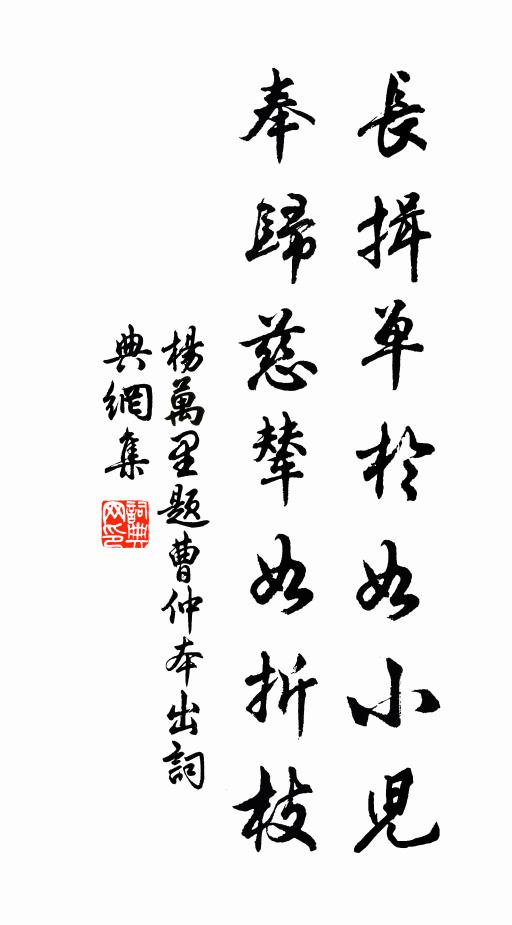 長揖单於如小児
奉歸慈輦如折枝
楊萬里題曹仲本出詞
典網集
詞典网印